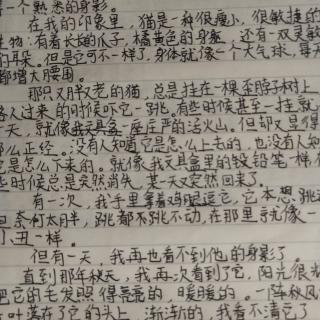 一个熟悉的身影。
在我的印象里，猫是种很瘦小，很敏捷的
生物，有着长长的爪子，橘黄色的身躯，还有一双灵敏
的耳朵。但是它可不一样了，身体就像一个大气球，每天
都增大腰围。
那只又胖又老的猫，总是挂在一棵歪脖子树上，
路人过来的时候吓它一跳。有些时候甚至一挂就
一天，就像一座庄严的活火山。但却又显得
那么正经。没有人知道它是怎么上去的，也没有人知
它是怎么下来的。就像我文具盒里的铅笔一样，
些时候总是突然消失，某一天又突然回来了。
有一次，我手里拿着鸡腿逗它，它本想跳
但奈何太月半，跳都不跳不动，在那里就像一
小丑一样。
但有一天，我再也看不到他的身影了。
直到那年秋天，我再次看到了它，阳光很
把它的毛发照得亮亮的，暖暖的。一阵秋风
叶落在了它的头上，渐渐的，我看不清它了